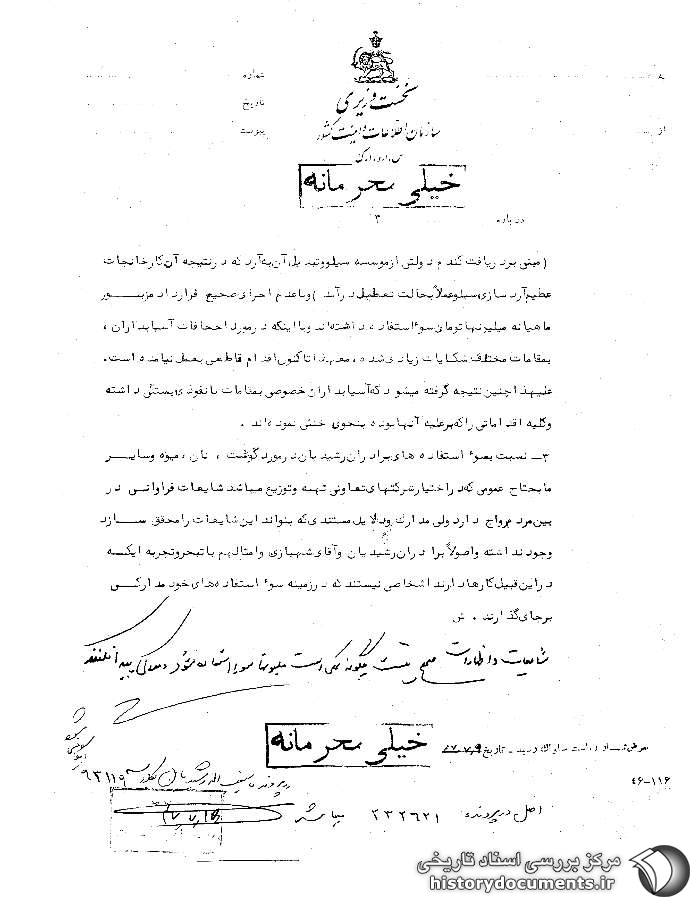 شماره
تاریخ
پیوست
از
نخست وزیری
سازمان اطلاعات و امنیت کشور
س.ا.و.ا.ک
خیلی محرمانه
درباره
۳
( مبنی بر دریافت گندم دولتی از موسسه سیلو و تبدیل آن به آرد که در نتیجه آن کارخانجات
عظیم آرد سازی سیلو عملاً بحالت تعطیل درآمد ) و با عدم اجرای صحیح قرارداد مزبور
ماهیانه میلیونها تومان سوء استفاده داشته اند و با اینکه در مورد اجحافات آسیابداران ،
بمقامات مختلف شکایات زیادی شده ، معهذا تاکنون اقدام قاطعی بعمل نیامده است .
علیهذا چنین نتیجه گرفته میشود که آسیابداران خصوصی بمقامات با نفوذی بستگی داشته
و کلیه اقداماتی را که بر علیه آنها بوده بنحوی خنثی نموده اند .
۳ـ نسبت بسوء استفاده های برادران رشیدیان در مورد گوشت ، نان ، میوه و سایر
مایحتاج عمومی که در اختیار شرکتهای تعاونی تهیه و توزیع میباشد شایعات فراوانی در
بین مردم رواج دارد ولی مدارک و دلایل مستندی که بتواند این شایعات را محقق سازد
وجود نداشته و اصولاً برادران رشیدیان و آقای شهبازی و امثالهم با تبحر و تجربه ایکه
در این قبیل کارها دارند اشخاصی نیستند که در زمینه سوء استفاده های خود مدارکی
برجای گذارند . ش
شایعات و اظهارات صحیح نیست چگونه ممکن است میلیونها سوء استفاده شود و مدارکی پیدا نکنند
خیلی محرمانه
بعرض تیمسار ریاست ساواک رسید . تاریخ
در پرونده سیف اله رشیدیان
۴۶-۱۱۶
اصل در پرونده: ۳۳۲۶۲۱
مرکز بررسی اسناد تاریخی
historydocuments.ir